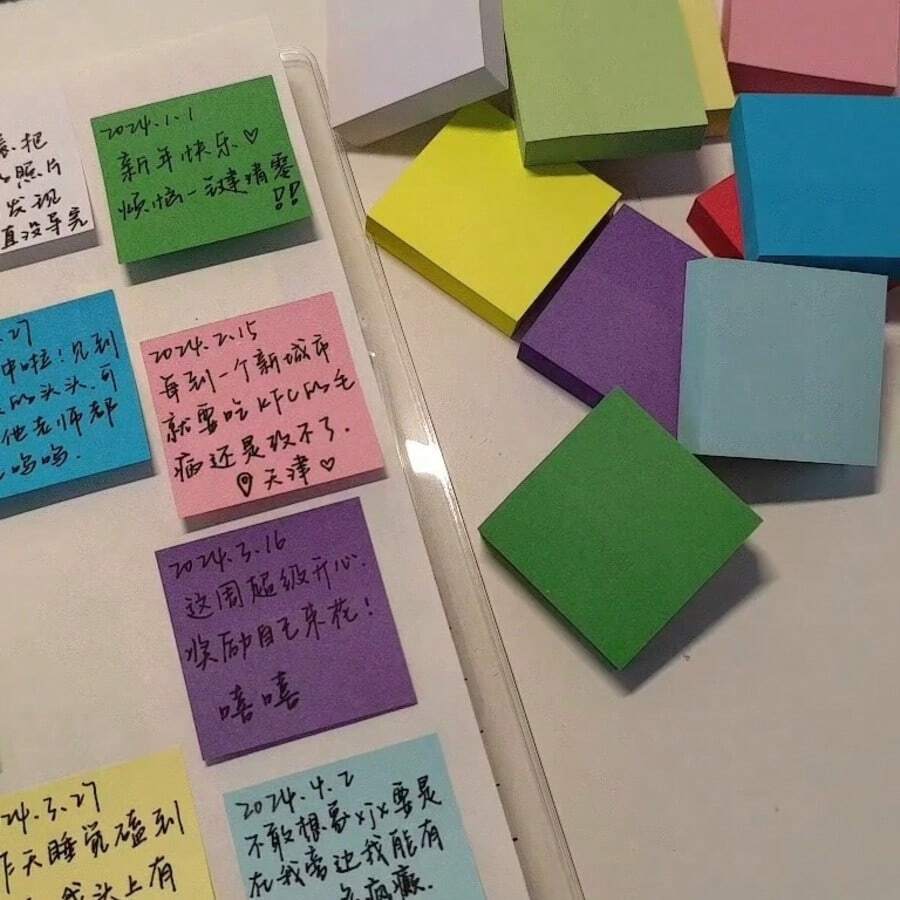 把
照片
发现
直没导完
2024.1.1
新年快乐♡
烦恼一键清零
!!
27
中啦！见到
头头.可
他老师都
呜呜.
2024.2.15
每到一个新城市
就要吃KFC的毛
病还是改不了.
天津♡
2024.3.16
这周超级开心.
奖励自己朵花！
嘻嘻
24.3.27
昨天睡觉磕到
我头上有
2024.4.2
不敢想象xjx要是
在我旁边我能有
疯癫.